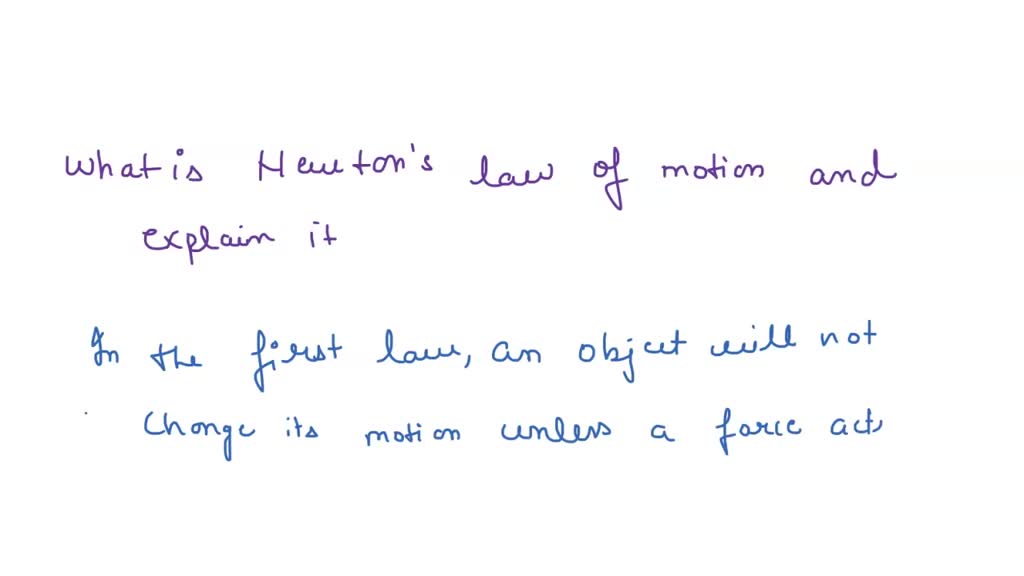 What is Newton's law of motion and
explain it
In the first law, an object will not
Change its motion unless a force acts